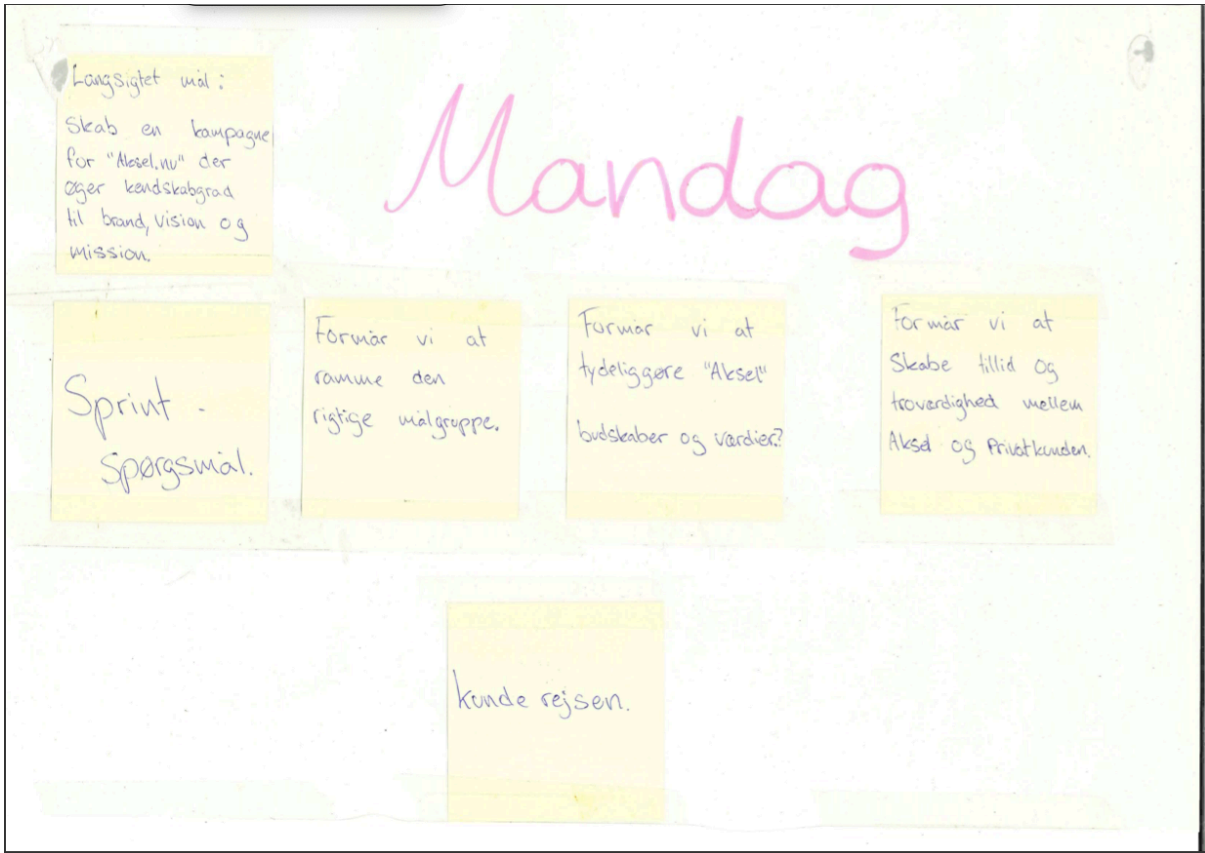 Langsigtet mål:
Skab en kampagne
for "Aksel.nu" der
øger kendskabgrad
til brand, vision og
mission.
Mandag
Sprint -
Spørgsmål.
Formår vi at
ramme den
rigtige målgruppe.
Formår vi at
tydeliggøre "Aksel"
budskaber og værdier?
Formår vi at
Skabe tillid og
troværdighed mellem
Aksel og Privatkunden.
kunde rejsen.